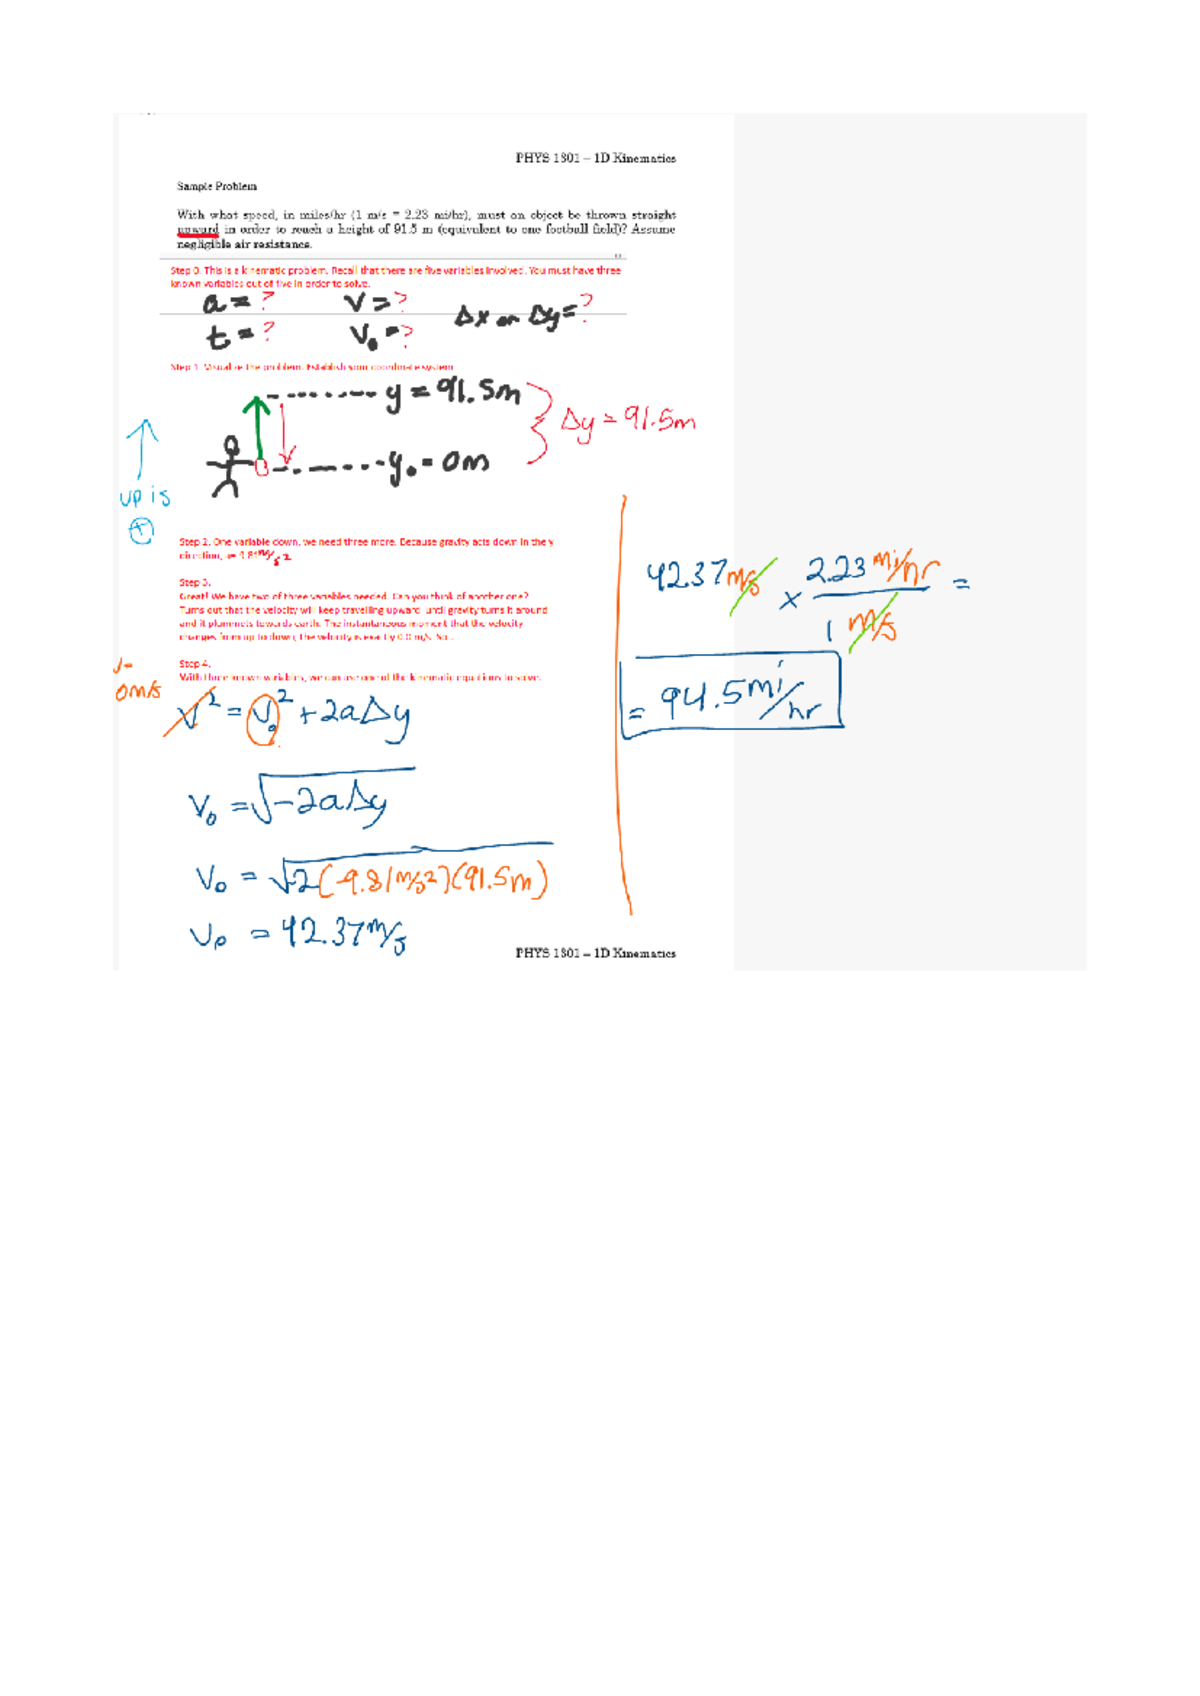 PHYS 1301 – 1D Kinematics
Sample Problem
With what speed, in miles/hr (1 m/s = 2.23 mi/hr), must an object be thrown straight
upward in order to reach a height of 91.5 m (equivalent to one football field)? Assume
negligible air resistance.
Step 0. This is a kinematic problem. Recall that there are five variables involved. You must have three
known variables out of five in order to solve.
a = ? v = ? Δx or Δy = ?
t = ? v₀ = ?
Step 1. Visualize the problem. Establish your coordinate system
y = 91.5m
Δy = 91.5m
y₀ = 0m
up is
+
Step 2. One variable down, we need three more. Because gravity acts down in the y
direction, a= 9.81m/s2
Step 3.
Great! We have two of three variables needed. Can you think of another one?
Turns out that the velocity will keep travelling upward until gravity turns it around
and it plummets towards earth. The instantaneous moment that the velocity
changes from up to down, the velocity is exactly 0.0 m/s. So..
Step 4.
With three known variables, we can use one of the kinematic equations to solve.
v=
0m/s
v² = v₀² + 2aΔy
v₀ = √-2aΔy
v₀ = √-2(-9.81m/s²)(91.5m)
v₀ = 42.37m/s
42.37 m/s × 2.23 mi/hr / 1 m/s =
= 94.5 mi/hr
PHYS 1301 – 1D Kinematics